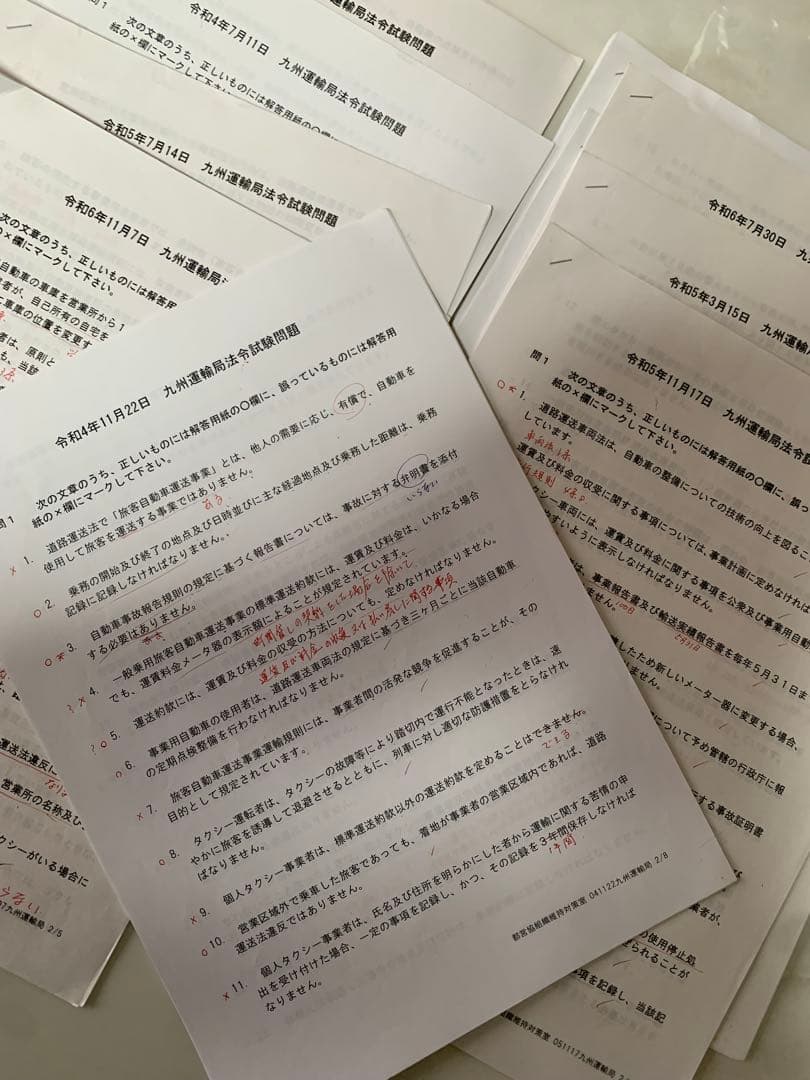 令和4年7月11日 九州運輸局法令試験問題
問1 次の文章のうち、正しいものには解答用紙の○欄に
紙の×欄にマークして下さい。
九州運輸局法令試験問題
令和5年7月14日 九州運輸局法令試験問題
令和6年11月7日 九州運輸局法令試験
次の文章のうち、正しいものには解答用
の×欄にマークして下さい。
自動車の車庫を営業所から1
者が、自己所有の自宅を
車庫の位置を変更す
者は、原則と
も、当該
運送法違反に
営業所の名称及び
タクシーがいる場合に
九州運輸局 2/5
令和4年11月22日 九州運輸局法令試験問題
問1 次の文章のうち、正しいものには解答用紙の○欄に、誤っているものには解答用
紙の×欄にマークして下さい。
× 1. 道路運送法で「旅客自動車運送事業」とは、他人の需要に応じ、有償で、自動車を
使用して旅客を運送する事業ではありません。
ある
○ 2. 乗務の開始及び終了の地点及び日時並びに主な経過地点及び乗務した距離は、乗務
記録に記録しなければなりません。
3. 自動車事故報告規則の規定に基づく報告書については、事故に対する弁明書を添付
する必要はありません。
× 4. 一般乗用旅客自動車運送事業の標準運送約款には、運賃及び料金は、いかなる場合
でも、運賃料金メータ器の表示額によることが規定されています。
時間貸しの契約をした場合を除いて
○ 5. 運送約款には、運賃及び料金の収受の方法についても、定めなければなりません。
運賃及び料金の収受又は払い戻しに関する事項
○ 6. 事業用自動車の使用者は、道路運送車両法の規定に基づき三ヶ月ごとに当該自動車
の定期点検整備を行わなければなりません。
× 7. 旅客自動車運送事業運輸規則には、事業者間の活発な競争を促進することが、その
目的として規定されています。
○ 8. タクシー運転者は、タクシーの故障等により踏切内で運行不能となったときは、速
やかに旅客を誘導して退避させるとともに、列車に対し適切な防護措置をとらなけれ
ばなりません。
× 9. 個人タクシー事業者は、標準運送約款以外の運送約款を定めることはできません。
できる
○ 10. 営業区域外で乗車した旅客であっても、着地が事業者の営業区域内であれば、道路
運送法違反ではありません。
× 11. 個人タクシー事業者は、氏名及び住所を明らかにした者から運輸に関する苦情の申
出を受け付けた場合、一定の事項を記録し、かつ、その記録を3年間保存しなければ
なりません。
1年間
都営協組織維持対策室 041122九州運輸局 2/8
令和6年7月30日 九
令和5年3月15日 九州運輸
令和5年11月17日 九州運輸局法
問1 次の文章のうち、正しいものには解答用紙の○欄に、誤
紙の×欄にマークして下さい。
1. 道路運送車両法は、自動車の整備についての技術の向上を図るこ
しています。
運賃及び料金の収受に関する事項については、事業計画に定めなければ
タクシー車両には、運賃及び料金に関する事項を公衆及び事業用自動
やすいように表示しなければなりません。
は、事業報告書及び輸送実績報告書を毎年5月31日ま
りません。
100日
5月31日
したため新しいメーター器に変更する場合、
について予め管轄の行政庁に報
する事故証明書
業者が、
の使用停止処
せられることが
事項を記録し、当該記
対策室 051117九州運輸局